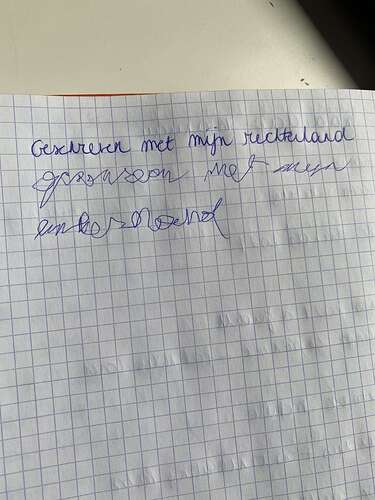 Geschreven met mijn rechterhand
geschreven met mijn
linkerhand